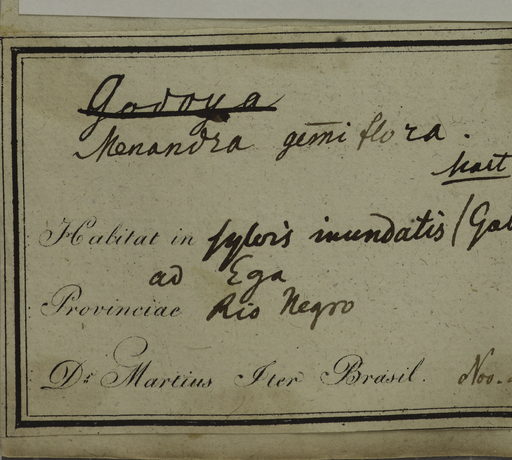 Godoya
Menandra gemiflora.
Mart
Habitat in sylvis inundatis (Ga
ad Ega
Provinciae Rio Negro
Dr Martius Iter Brasil. Nov.